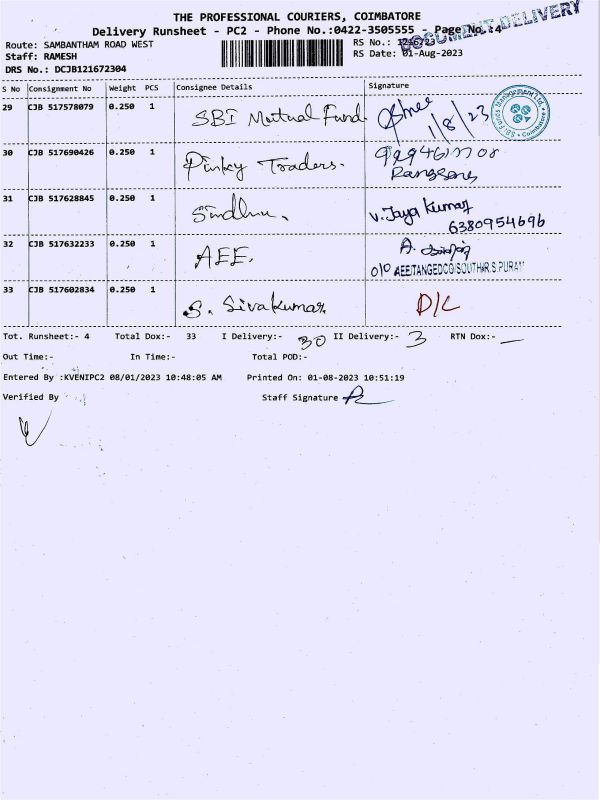 THE PROFESSIONAL COURIERS, COIMBATORE
Delivery Runsheet - PC2 - Phone No.:0422-3505555 - Page No.:4
DOCUMENT DELIVERY
Route: SAMBANTHAM ROAD WEST
RS No.:
Staff: RAMESH
RS Date: 01-Aug-2023
DRS No.: DCJB121672304
S No Consignment No Weight PCS Consignee Details Signature
29 CJB 517578079 0.250 1 SBI Mutual Fund 1/8/23
SBI Funds Management Ltd. Coimbatore
30 CJB 517690426 0.250 1 Pinky Traders.
31 CJB 517628845 0.250 1 Sindhu. V. Jaya Kumar
6380954696
32 CJB 517632233 0.250 1 AEE. A.
O/O AEE/TANGEDCO/SOUTH/R.S.PURAM
33 CJB 517602834 0.250 1 S. Sivakumar D/L
Tot. Runsheet:- 4 Total Dox:- 33 I Delivery:- 30 II Delivery:- 3 RTN Dox:- —
Out Time:- In Time:- Total POD:-
Entered By :KVENIPC2 08/01/2023 10:48:05 AM Printed On: 01-08-2023 10:51:19
Verified By Staff Signature